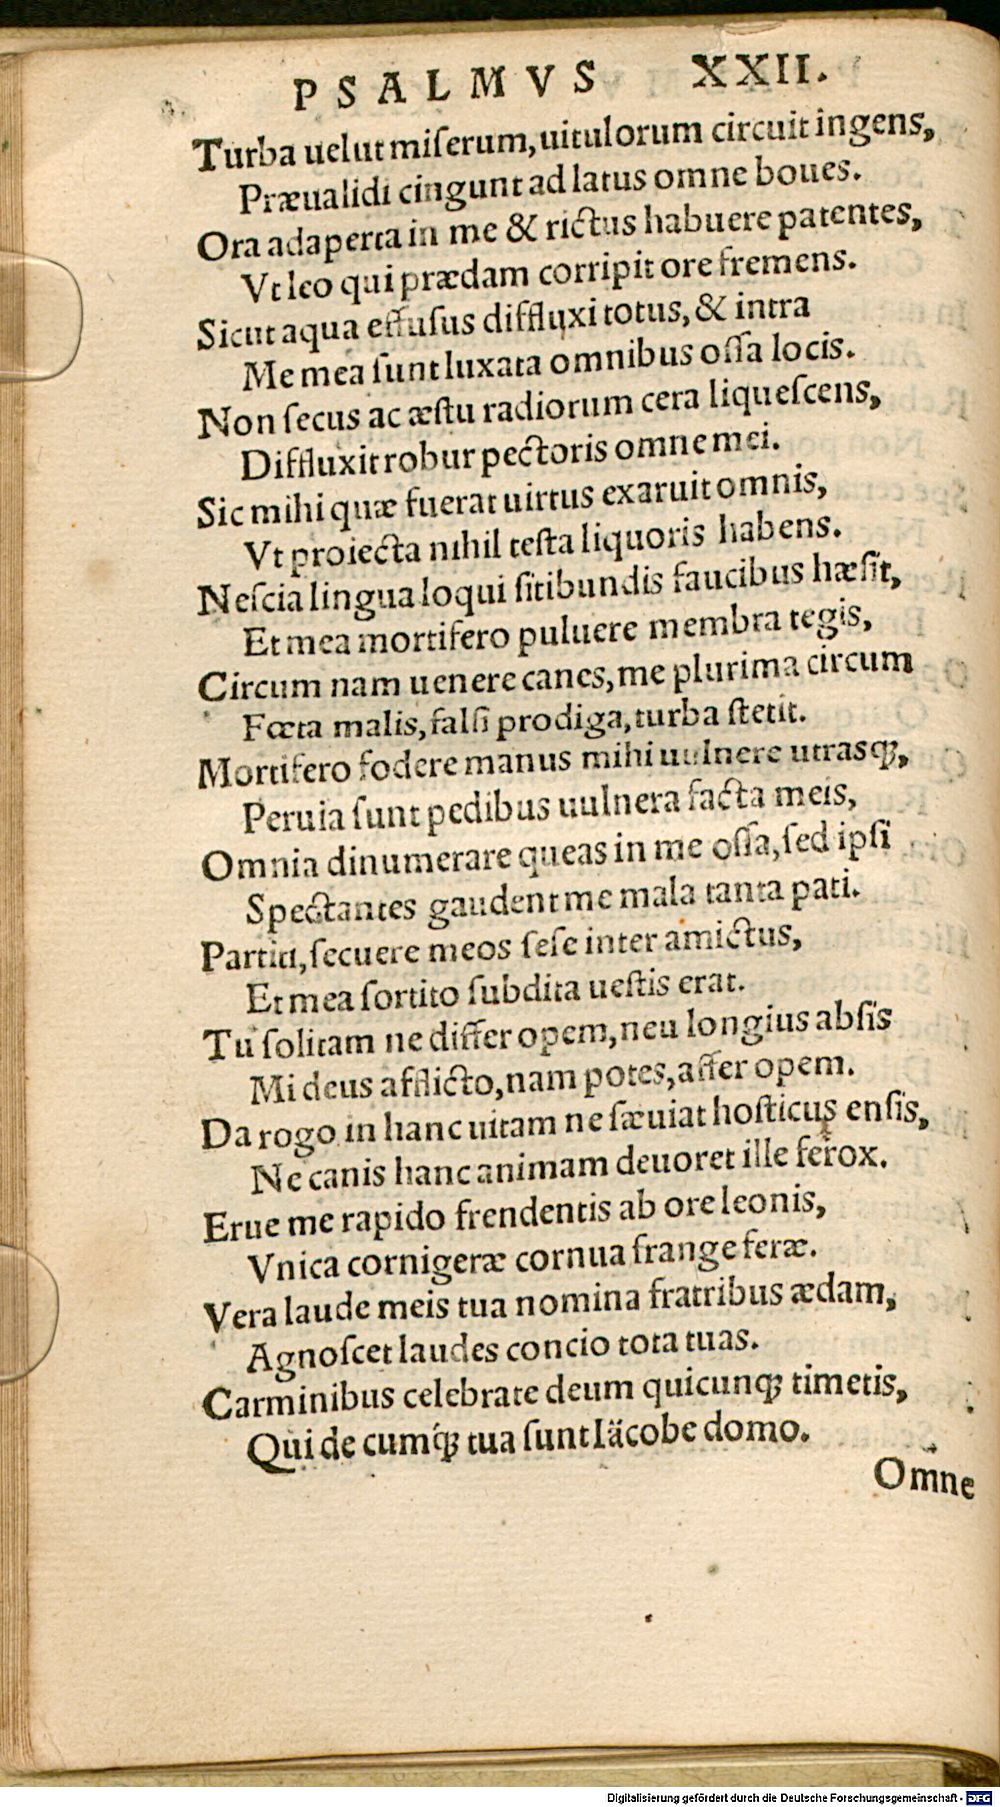 PSALMVS XXII.
Turba uelut miſerum, uitulorum circuit ingens,
Præualidi cingunt ad latus omne boues.
Ora adaperta in me & rictus habuere patentes,
Vt leo qui prædam corripit ore fremens.
Sicut aqua effuſus diffluxi totus, & intra
Me mea ſunt luxata omnibus oſſa locis.
Non ſecus ac æſtu radiorum cera liqueſcens,
Diffluxit robur pectoris omne mei.
Sic mihi quæ fuerat uirtus exaruit omnis,
Vt proiecta nihil teſta liquoris habens.
Neſcia lingua loqui ſitibundis faucibus hæſit,
Et mea mortifero puluere membra tegis,
Circum nam uenere canes, me plurima circum
Fœta malis, falſi prodiga, turba ſtetit.
Mortifero fodere manus mihi uulnere utrasq;,
Peruia ſunt pedibus uulnera facta meis,
Omnia dinumerare queas in me oſſa, ſed ipſi
Spectantes gaudent me mala tanta pati.
Partiti, ſecuere meos ſeſe inter amictus,
Et mea ſortito ſubdita ueſtis erat.
Tu ſolitam ne differ opem, neu longius abſis
Mi deus afflicto, nam potes, affer opem.
Da rogo in hanc uitam ne ſæuiat hoſticus enſis,
Ne canis hanc animam deuoret ille ferox.
Erue me rapido frendentis ab ore leonis,
Vnica cornigeræ cornua frange feræ.
Vera laude meis tua nomina fratribus ædam,
Agnoſcet laudes concio tota tuas.
Carminibus celebrate deum quicunq; timetis,
Qui de cumq́; tua ſunt Iäcobe domo.
Omne
Digitalisierung gefördert durch die Deutsche Forschungsgemeinschaft - DFG